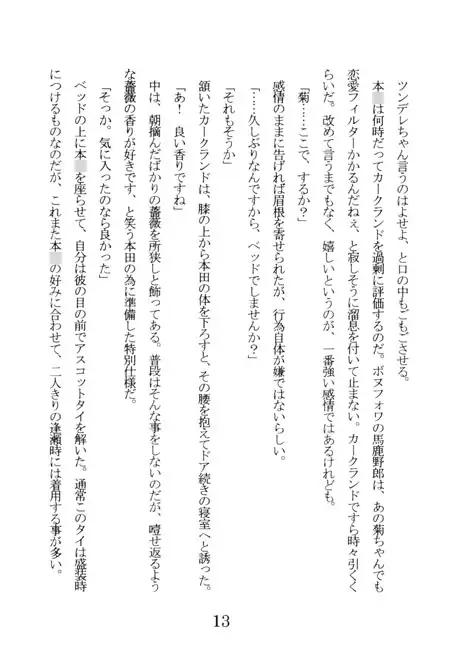 ツンデレちゃん言うのはよせよ、と口の中もごもごさせる。
本は何時だってカークランドを過剰に評価するのだ。ボヌフォワの馬鹿野郎は、あの菊ちゃんでも
恋愛フィルターかかるんだねぇ、と寂しそうに溜息を付いて止まない。カークランドですら時々引くく
らいだ。改めて言うまでもなく、嬉しいというのが、一番強い感情ではあるけれども。
「菊……ここで、するか？」
感情のままに告げれば眉根を寄せられたが、行為自体が嫌ではないらしい。
「……久しぶりなんですから、ベッドでしませんか？」
「それもそうか」
頷いたカークランドは、膝の上から本田の体を下ろすと、その腰を抱えてドア続きの寝室へと誘った。
「あ！良い香りですね」
中は、朝摘んだばかりの薔薇を所狭しと飾ってある。普段はそんな事をしないのだが、噎せ返るよう
な薔薇の香りが好きです、と笑う本田の為に準備した特別仕様だ。
「そっか。気に入ったのなら良かった」
ベッドの上に本を座らせて、自分は彼の目の前でアスコットタイを解いた。通常このタイは盛装時
につけるものなのだが、これまた本の好みに合わせて、二人きりの逢瀬時には着用する事が多い。
13